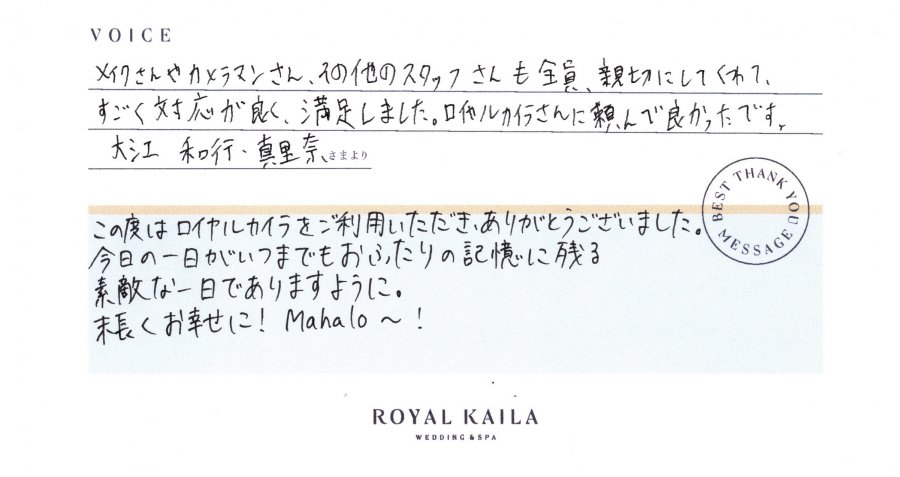 VOICE
メイクさんやカメラマンさん、その他のスタッフさんも全員、親切にしてくれて、
すごく対応が良く、満足しました。ロイヤルカイラさんに頼んで良かったです。
大江 和行・真里奈さまより
BEST THANK YOU MESSAGE
この度はロイヤルカイラをご利用いただき、ありがとうございました。
今日の一日がいつまでもおふたりの記憶に残る
素敵な一日でありますように。
末長くお幸せに! Mahalo〜!
ROYAL KAILA
WEDDING & SPA